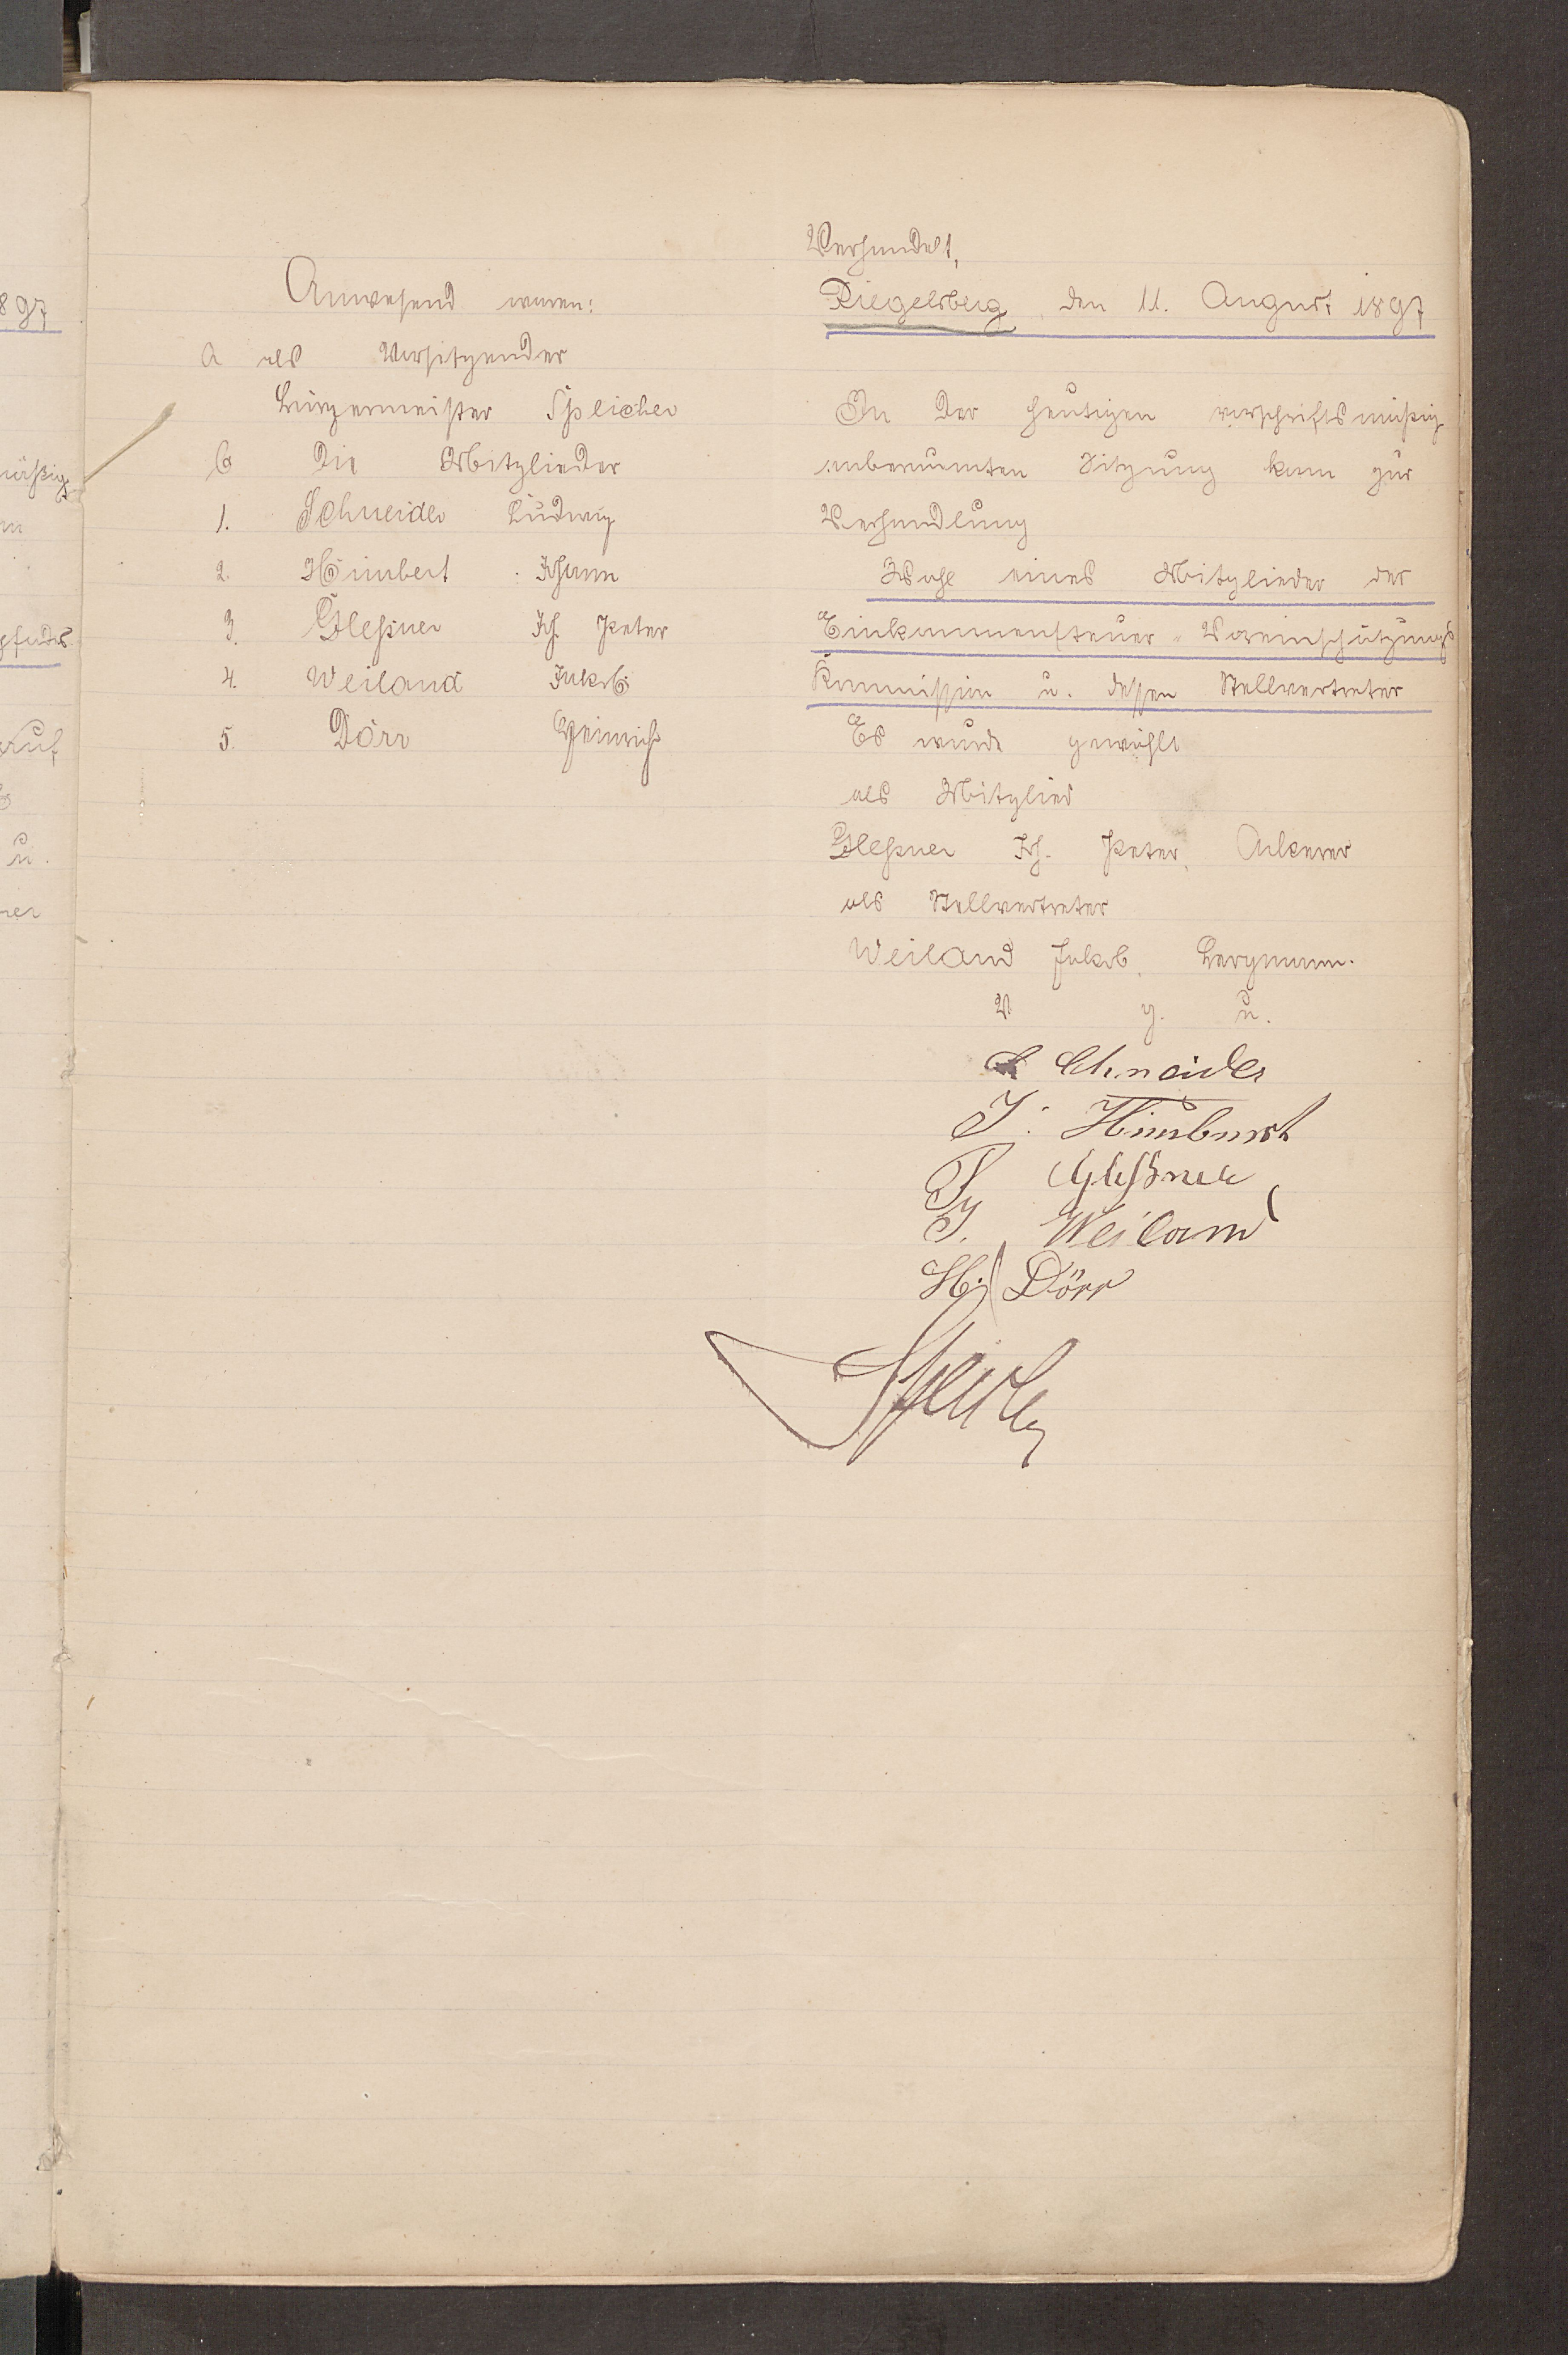 Anwesend waren:
a als Vorsitzender
Bürgermeister Speicher
b die Mitglieder
1. Schneider Ludwig
2. Himbert Johann
3. Gleßner Joh. Peter
4. Weiland Jakob
5. Dörr Heinrich
Verhandelt,
Riegelsberg, den 11. August 1897
In der heutigen vorschriftsmäßig
anberaumten Sitzung kam zur
Verhandlung
Wahl eines Mitglieder der
Einkommensteuer-Voreinschätzungs
Kommission u. dessen Stellvertreter
Es wurde gewählt
als Mitglied
Gleßner Joh. Peter, Ackerer
als Stellvertreter
Weiland Jakob, Bergmann.
V g. u.
L Schneider
J. Himbert
P Gleßner
J. Weiland
H. Dörr
Speicher
897
mäßig
auf
u.